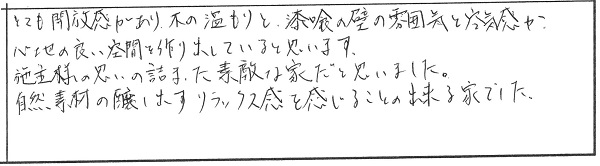 とても開放感があり、木の温もりと、漆喰の壁の雰囲気と空気感が
心地の良い空間を作り出していると思います。
施主様の思いの詰まった素敵な家だと思いました。
自然素材の醸し出すリラックス感を感じることの出来る家でした。